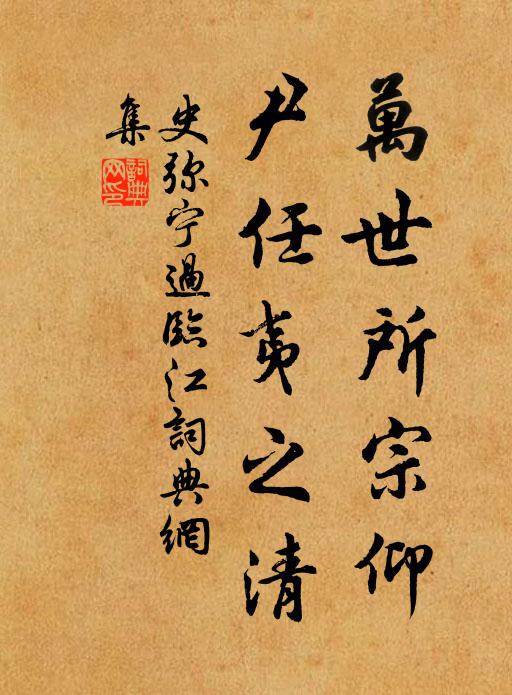 萬世所宗仰
尹任夷之清
史弥宁過臨江詞典網
集
詞典网印